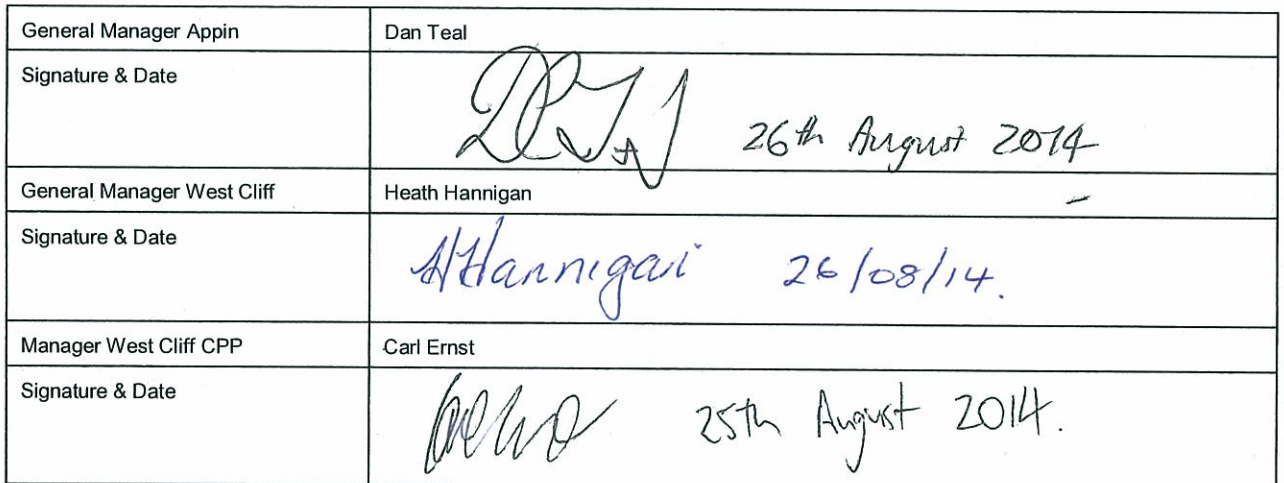 General Manager Appin Dan Teal
Signature & Date 26th August 2014
General Manager West Cliff Heath Hannigan
Signature & Date HHannigan 26/08/14.
Manager West Cliff CPP Carl Ernst
Signature & Date 25th August 2014.